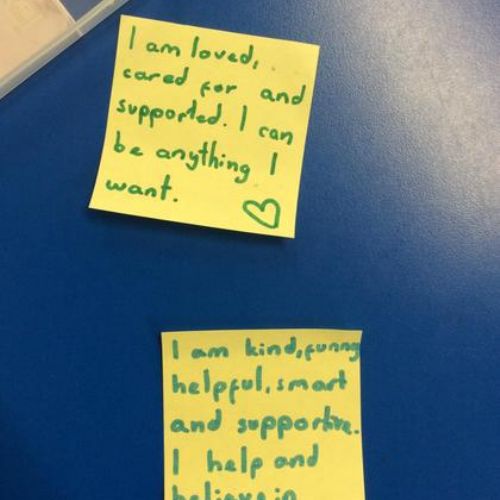 I am loved,
cared for and
supported. I can
be anything I
want.
I am kind, funny
helpful, smart
and supportive.
I help and
believe in